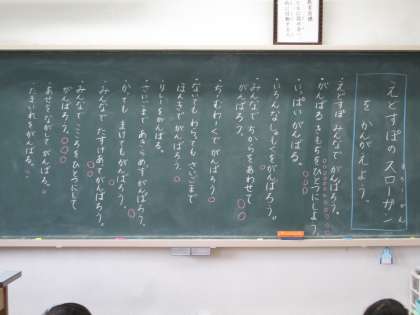 えどすぽのスローガン
を かんがえよう。
・えどすぽ みんなで がんばろう。
・がんばる きもちを ひとつにしよう
・いっぱい がんばる。
・いろんな しゅもくを がんばろう。
・みんなで ちからを あわせて
がんばろう。
・ちょうむりくで がんばろう
・ないても わらっても さいごまで
ほんきで がんばろう。
・リレーを がんばる。
・さいごまで あきらめずがんばろう。
・かっても まけても がんばろう。
・みんなで たすけあって がんばろう。
・みんなで こころを ひとつにして
がんばろう。
・あせを ながして がんばる。
・たまいれを がんばる。